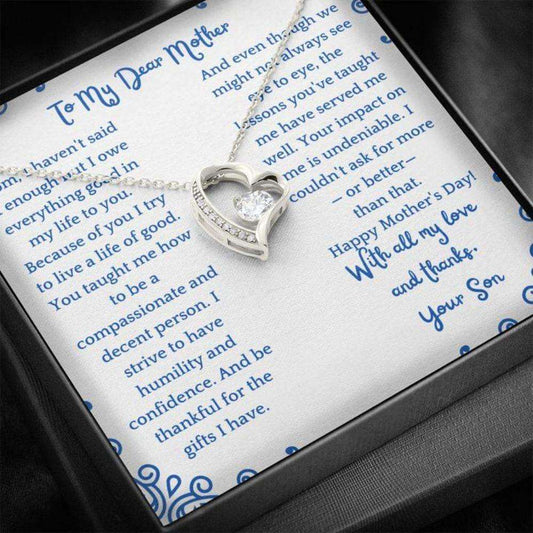 To My Dear Mother
haven't said
enough, but I owe
everything good in
my life to you.
Because of you I try
to live a life of good.
You taught me how
to be a
compassionate and
decent person. I
strive to have
humility and
confidence. And be
thankful for the
gifts I have.
And even though we
might not always see
eye to eye, the
lessons you've taught
me have served me
well. Your impact on
me is undeniable. I
couldn't ask for more
—or better—
than that.
Happy Mother's Day!
With all my love
and thanks,
Your Son